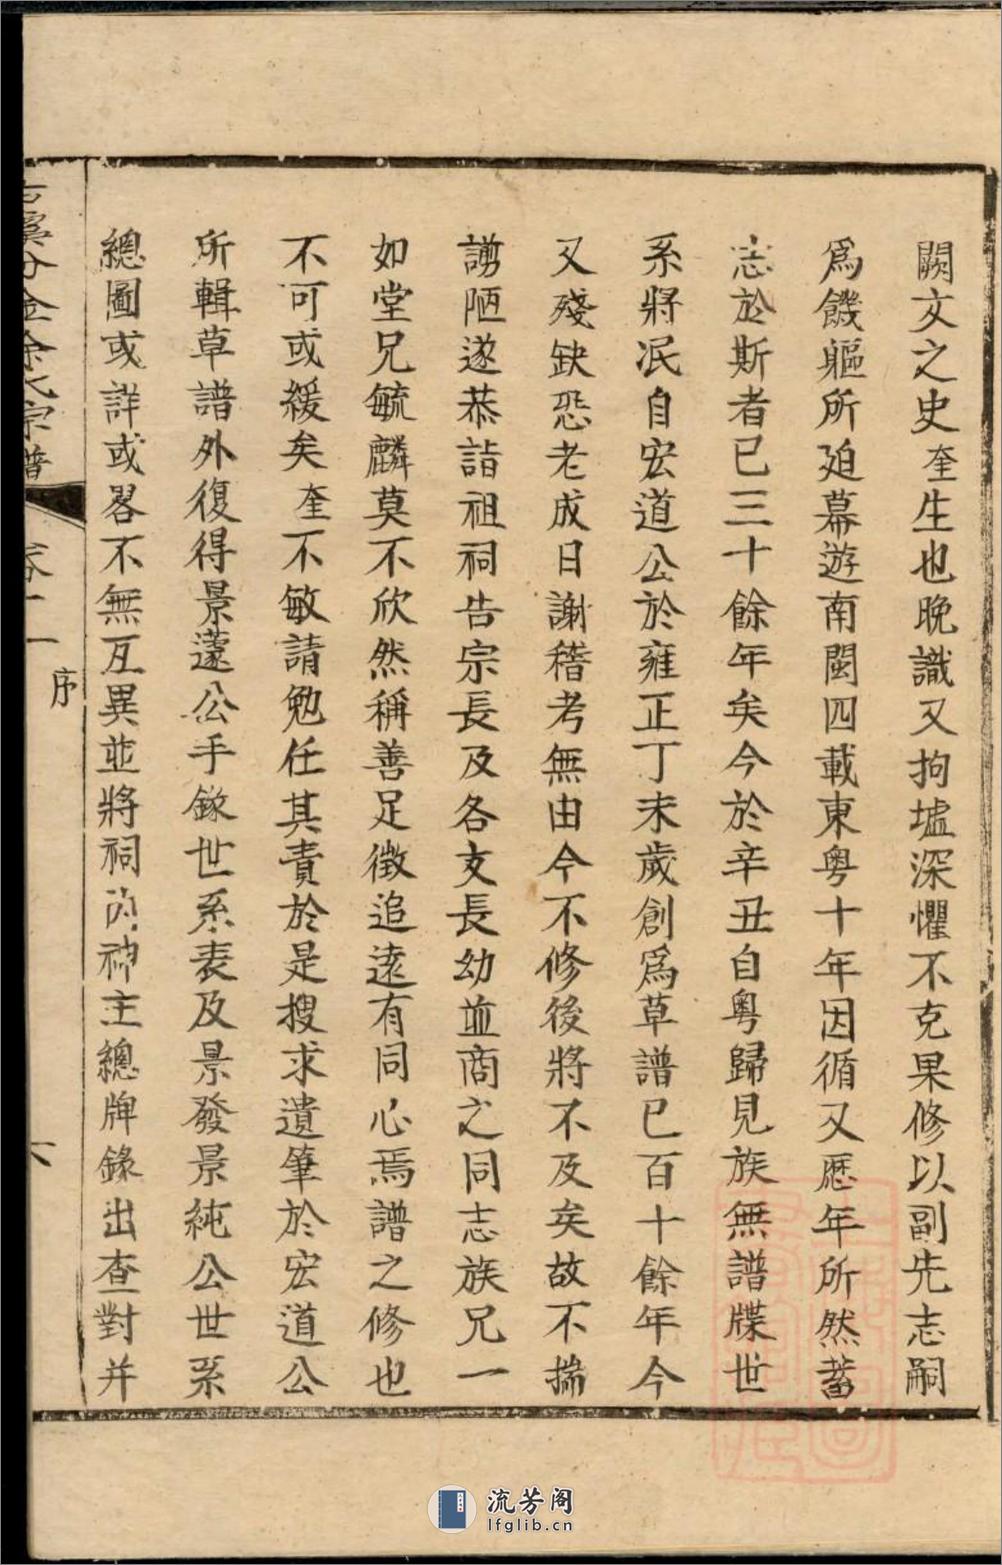 闕文之史奎生也晚識又拘墟深懼不克果修以副先志嗣
爲饑軀所廹幕遊南閩四載東粤十年因循又歷年所然蓄
志於斯者已三十餘年矣今於辛丑自粤歸見族無譜牒世
系將泯自宏道公於雍正丁未歲創爲草譜已百十餘年今
又殘缺恐老成日謝稽考無由今不修後將不及矣故不揣
謭陋遂恭詣祖祠告宗長及各支長幼並商之同志族兄一
如堂兄毓麟莫不欣然稱善足徵追遠有同心焉譜之修也
不可或緩矣奎不敏請勉任其責於是搜求遺筆於宏道公
所輯草譜外復得景蘧公手錄世系表及景發景純公世系
總圖或詳或畧不無互異並將祠內神主總牌錄出查對并
溪分金余氏宗譜
卷一
序
六
流芳阁
lfglib.cn